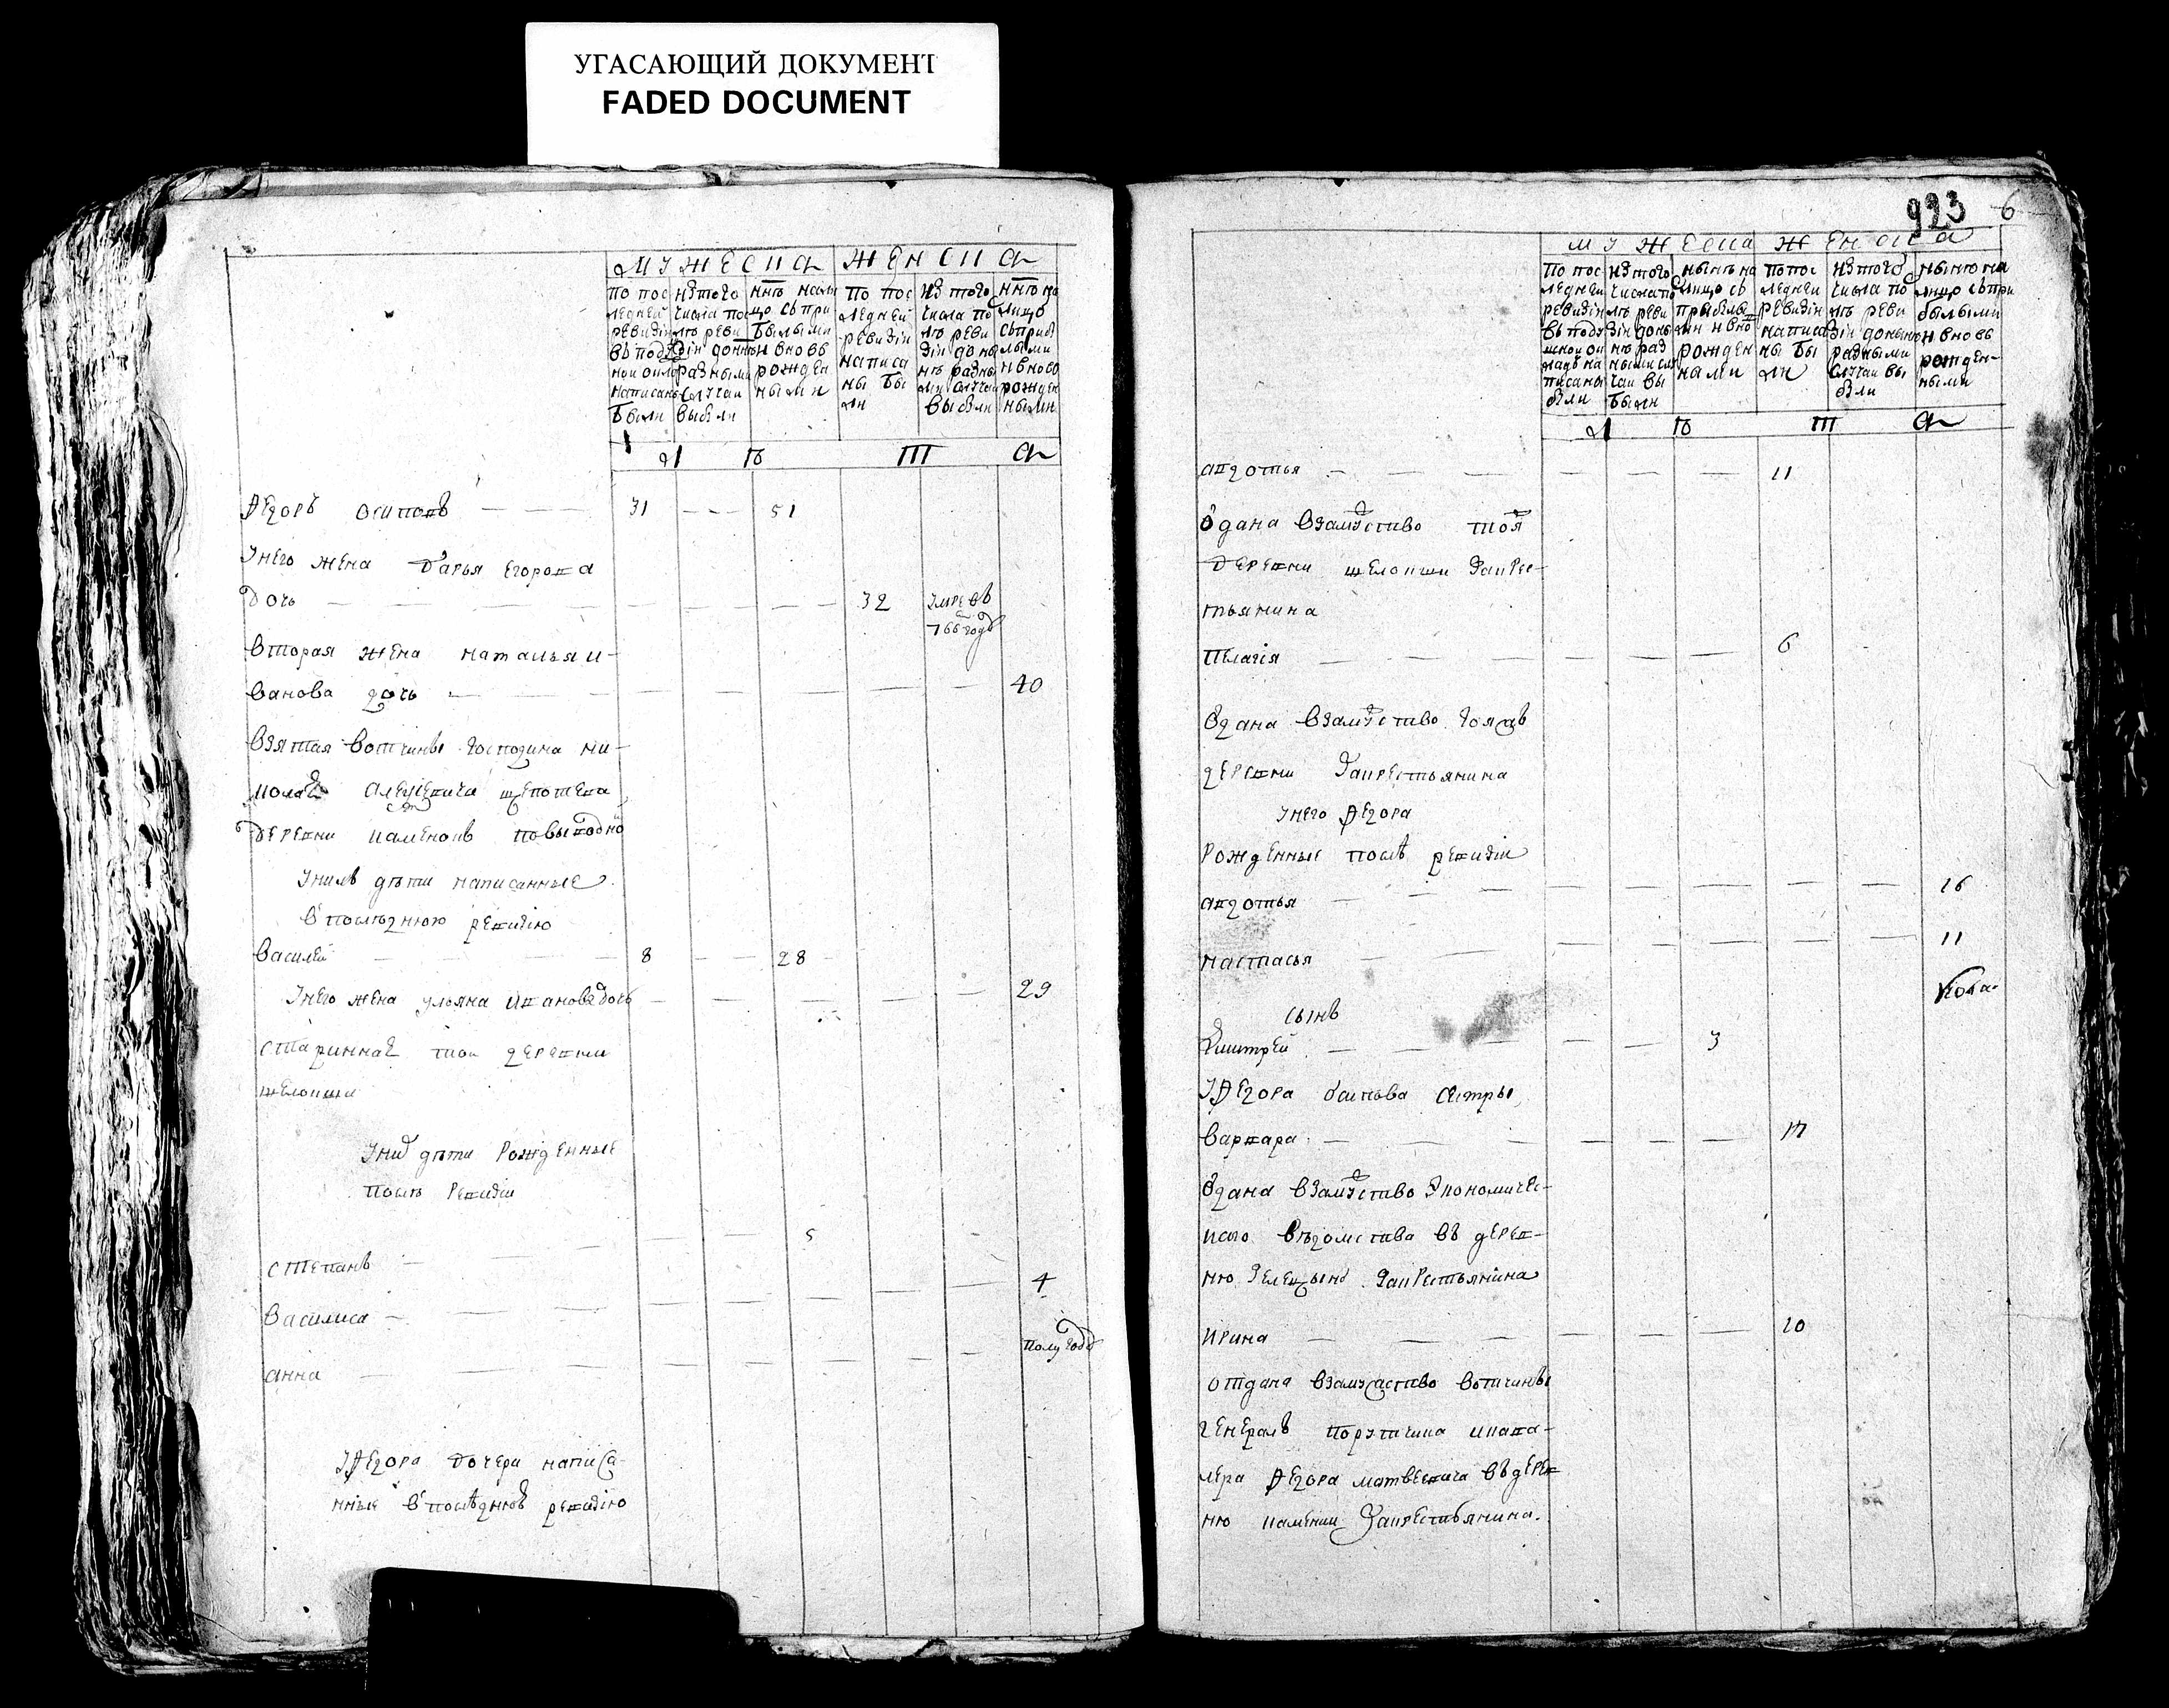 УГАСАЮЩИЙ ДОКУМЕНТ
FADED DOCUMENT
МУЖЕСКА ЖЕНСКА
По последней ревизіи въ подушной окладъ написаны были
изъ того числа после ревизіи до ныне разными случаи выбыли
ныне на лицо съ прибылыми и вновь рожденными
По последней ревизіи написаны были
изъ того числа после ревизіи до ныне разными случаи выбыли
ныне на лицо съ прибылыми и вновь рожденными
Л Ѣ Т А
Ѳедоръ Осиповъ — — — 31 — — 51
Унего жена Дарья Егорова
дочь — — — 32 умре въ
766 годѣ
вторая жена наталья и-
ванова дочь — — — 40
взятая вотчины господина ни-
колая алексеевича
деревни каменокъ повыводно
Унихъ дѣти написанные
в последнюю ревизию
Василей — — 8 — — 28
Унего жена ульяна иванова дочь — — — 29
старинная той деревни
шелокши
Уних дѣти Рожденные
после Ревизіи
степанъ — — — 5
Василиса — — — 4
анна — — — полу года
У Ѳедора дочери написа-
нные в последнюю ревизию
923 6
МУЖЕСКА ЖЕНСКА
По последней ревизіи въ подушной окладъ написаны были
изъ того числа после ревизіи до ныне разными случаи выбыли
ныне на лицо съ прибылыми и вновь рожденными
По последней ревизіи написаны были
изъ того числа после ревизіи до ныне разными случаи выбыли
ныне на лицо съ прибылыми и вновь рожденными
Л Ѣ Т А
авдотья — — — 11
Одана взамуство тоя
деревни шелокши закрес-
тьянина
Пелагія — — — 6
Одана взамуство
деревни закрестьянина
унего Ѳедора
Рожденные после ревизіи
авдотья — — — 16
настасья — — — 11
сынъ
Дмитрей — — — 3
У Ѳедора Осипова сестры
варвара — — —
Одана взамуство Экономичес-
каго вѣдомства въ дерев-
ню закрестьянина
Ирина — — — 10
отдана взамужство вотчины
генералъ порутчика икава-
лера Ѳедора матвеевича въ дерев-
ню камѣнки закрестьянина.